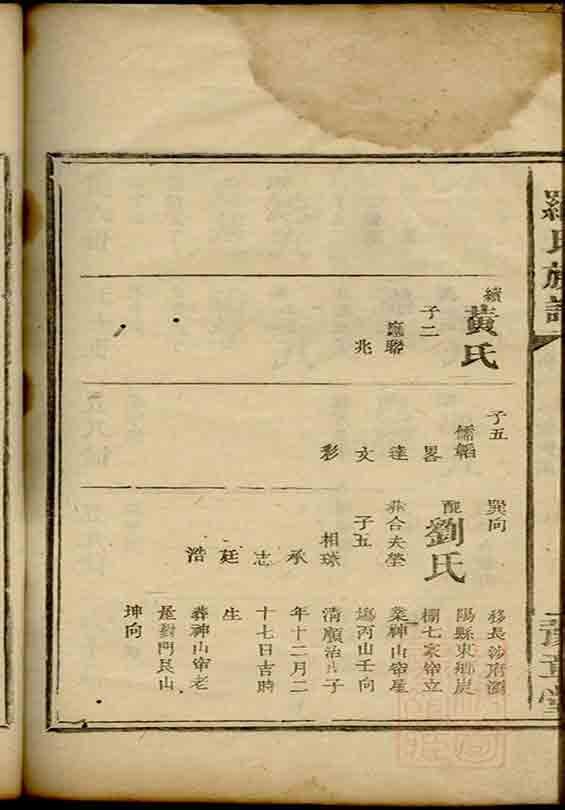 羅氏族譜
續黃氏
子二
聯
兆
子五
儒韜
畧
達
文
彩
巽向
配劉氏
葬合夫塋
子五
相球
承
志
廷
浩
移長沙府瀏
陽縣東鄉炭
棚七家窄立
業神山窄屋
塲丙山壬向
清順治戊子
年十二月二
十七日吉時
生
葬神山窄老
屋對門艮山
坤向